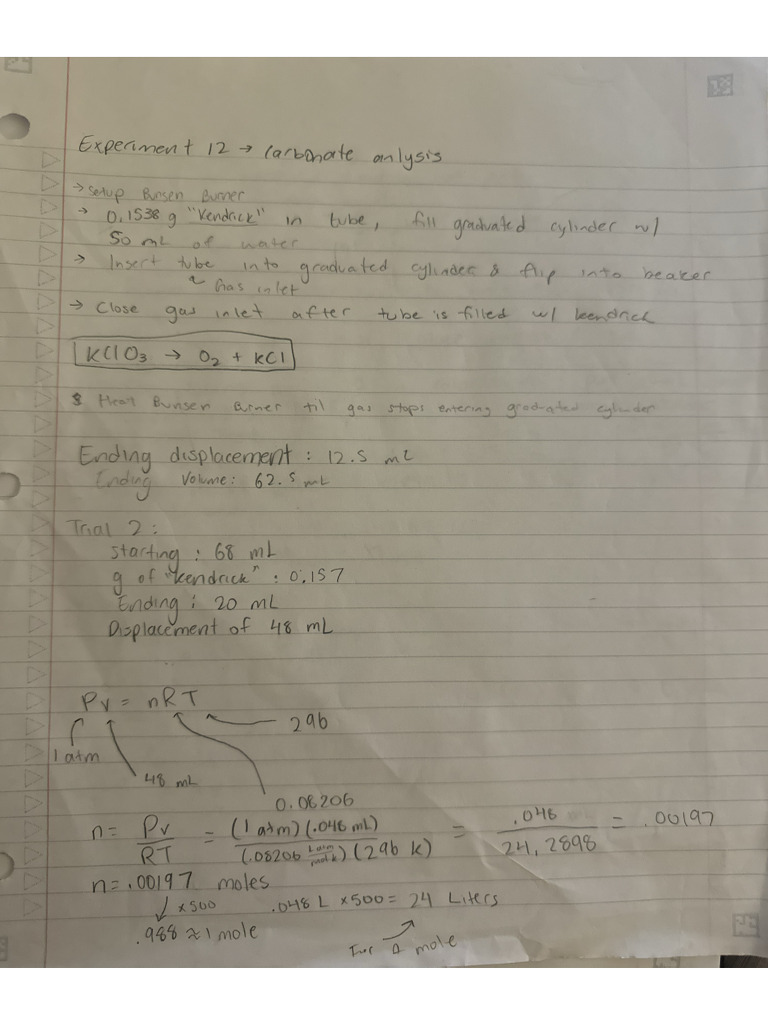 Experiment 12 → Carbonate anlysis
→ Setup Bunsen Burner
→ 0.1538 g "Kendrick" in tube, fill graduated cylinder w/
50 mL of water
→ Insert tube into graduated cylinder & flip into beaker
Gas inlet
→ Close gas inlet after tube is filled w/ kendrick
KClO3 → O2 + KCl
Heat Bunsen Burner til gas stops entering graduated cylinder
Ending displacement : 12.5 mL
Ending Volume: 62.5 mL
Trial 2 :
starting : 68 mL
g of "kendrick" : 0.157
Ending : 20 mL
Displacement of 48 mL
PV = nRT
296
1 atm
48 mL
0.08206
n = PV/RT = (1 atm)(.048 mL)/(.08206 L atm/mol k)(296 k) = .048/24.2898 = .00197
n = .00197 moles
↓ x500 .048 L x500 = 24 Liters
.988 ≈ 1 mole
For 1 mole